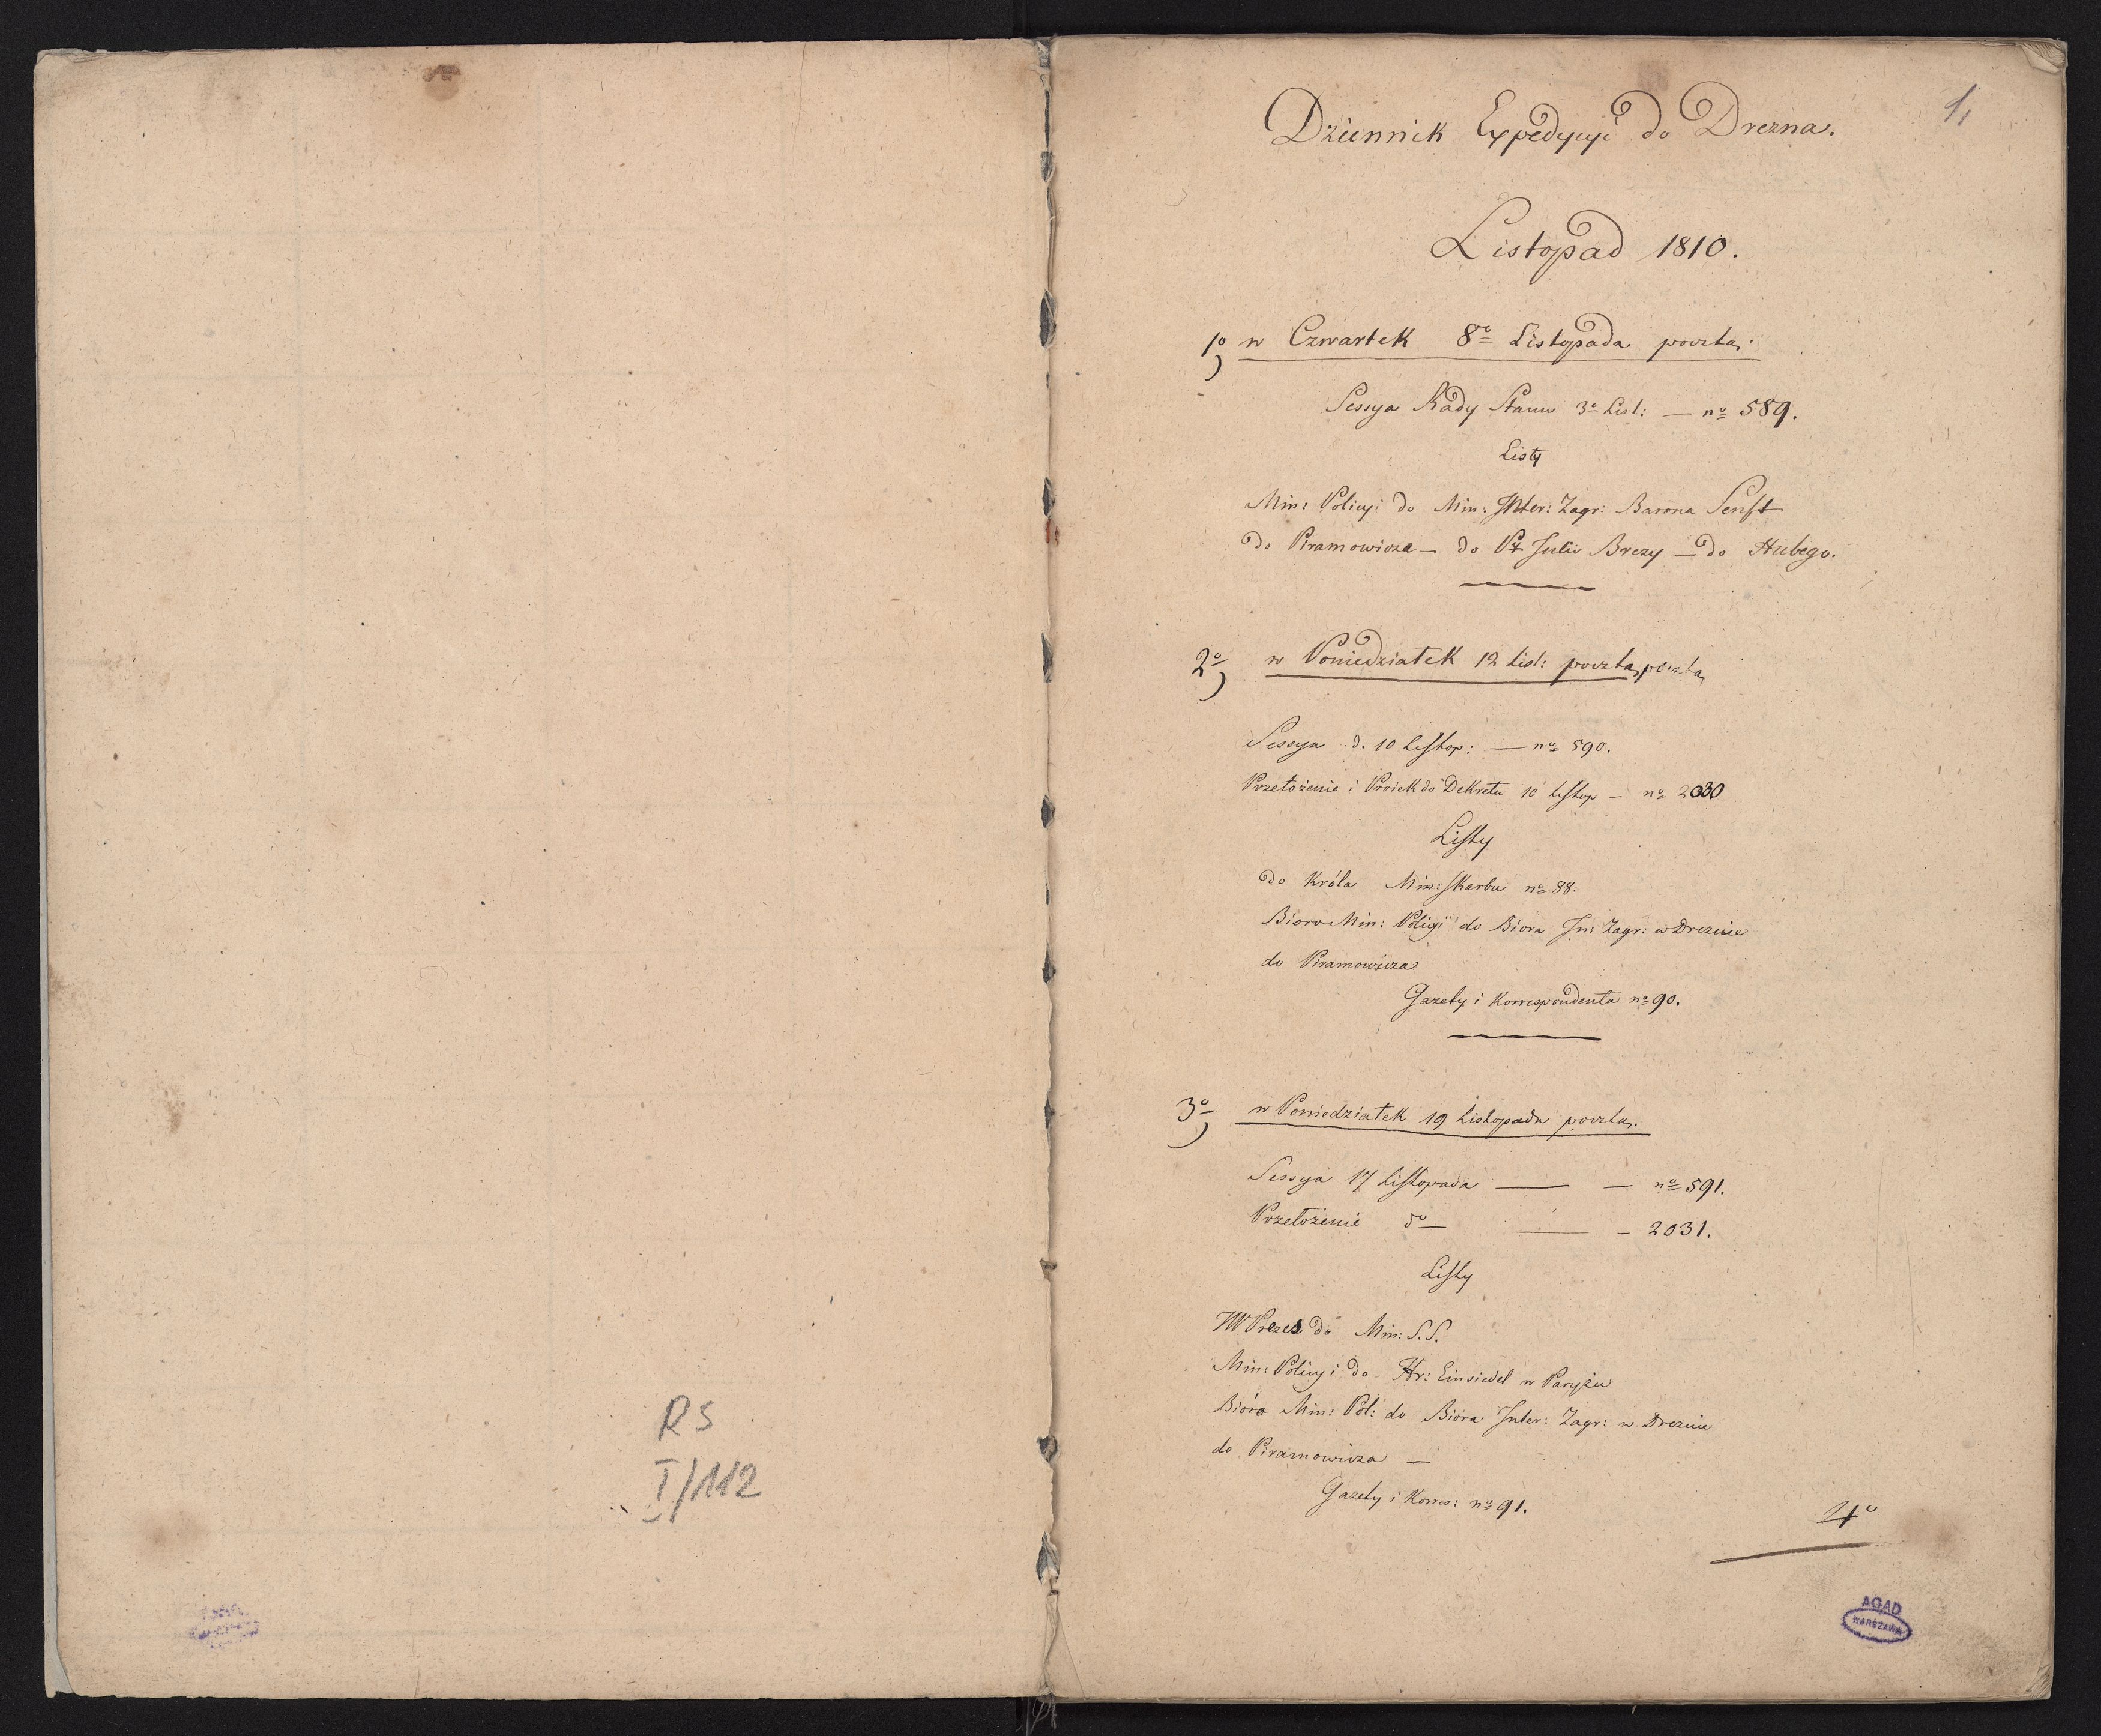 RS
I/112
1,
Dziennik Expedycyi do Drezna.
Listopad 1810.
1º w Czwartek 8º Listopada pocztą.
Sessya Rady Stanu 3º List: — nº 589.
Listy
Min: Policyi do Min: Inter: Zagr: Barona Senft
do Piramowicza — do Julii Brezy — do Hubego.
2º w Poniedziałek 12 List: pocztą, pocztą
Sessya d. 10 Listop: — nº 590.
Przełożenie i Proiekt do Dekretu 10 Listop — nº 2030
Listy
do Króla Min: Skarbu nº 88.
Bioro Min: Policyi do Biora In: Zagr: w Dreznie
do Piramowicza
Gazety i Korrespondenta nº 90.
3º w Poniedziałek 19 Listopada pocztą.
Sessya 17 Listopada — — nº 591.
Przełożenie dº — — — 2031.
Listy
JW Prezes do Min: S.S.
Min: Policyi do Hr: Einsiedel w Paryżu
Bióro Min: Pol: do Biora Inter: Zagr: w Dreznie
do Piramowicza —
Gazety i Korres: nº 91.
4º
AGAD
WARSZAWA